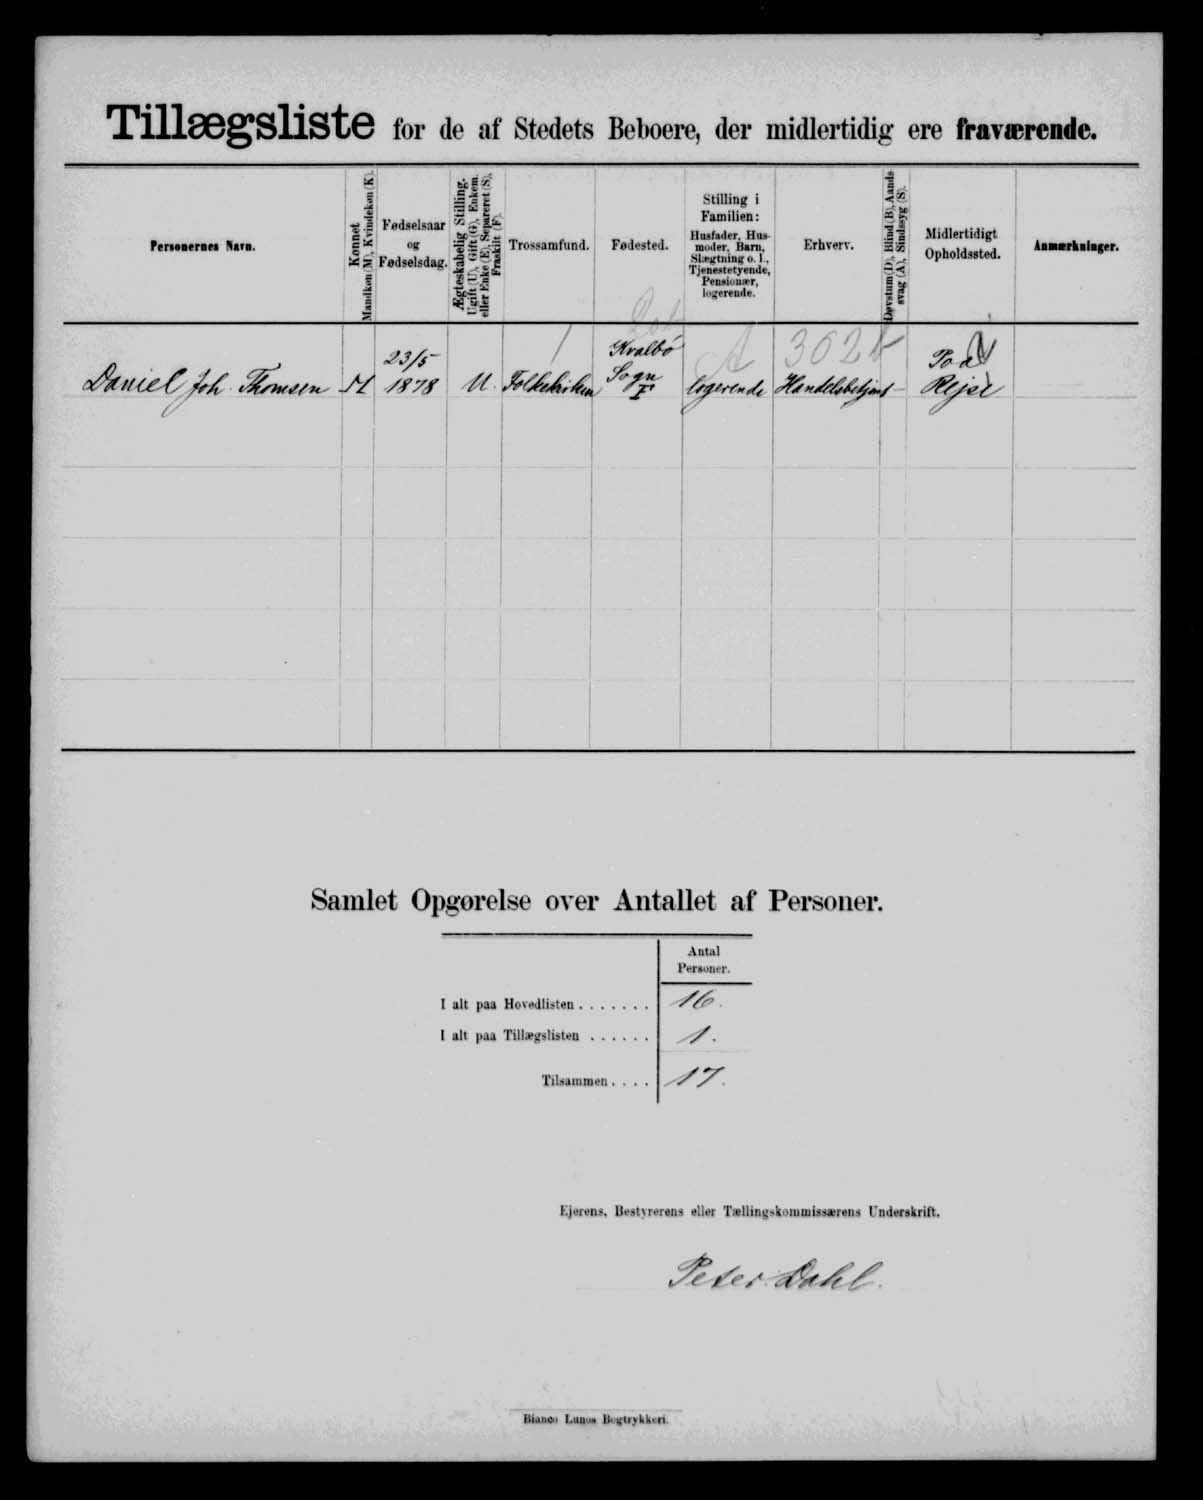 Tillægsliste for de af Stedets Beboere, der midlertidig ere fraværende.
Personernes Navn.
Kønnet
Mandkøn (M), Kvindekøn (K).
Fødselsaar
og
Fødselsdag.
Ægteskabelig Stilling.
Ugift (U), Gift (G), Enkem.
eller Enke (E), Separeret (S),
Fraskilt (F).
Trossamfund.
Fødested.
Stilling i
Familien:
Husfader, Hus-
moder, Barn,
Slægtning o. l.,
Tjenestetyende,
Pensionær,
logerende.
Erhverv.
Døvstum (D), Blind (B), Aands-
svag (A), Sindssyg (S).
Midlertidigt
Opholdssted.
Anmærkninger.
Daniel Joh. Thomsen
M
23/5
1878
U.
Folkekirken
Kvalbö
Sogn
F
A
logerende
362
Handelsbetjent
-
Paa
Rejse
Samlet Opgørelse over Antallet af Personer.
Antal
Personer.
I alt paa Hovedlisten ....... 16.
I alt paa Tillægslisten ...... 1.
Tilsammen .... 17.
Ejerens, Bestyrerens eller Tællingskommissærens Underskrift.
Peter Dahl.
Bianco Lunos Bogtrykkeri.